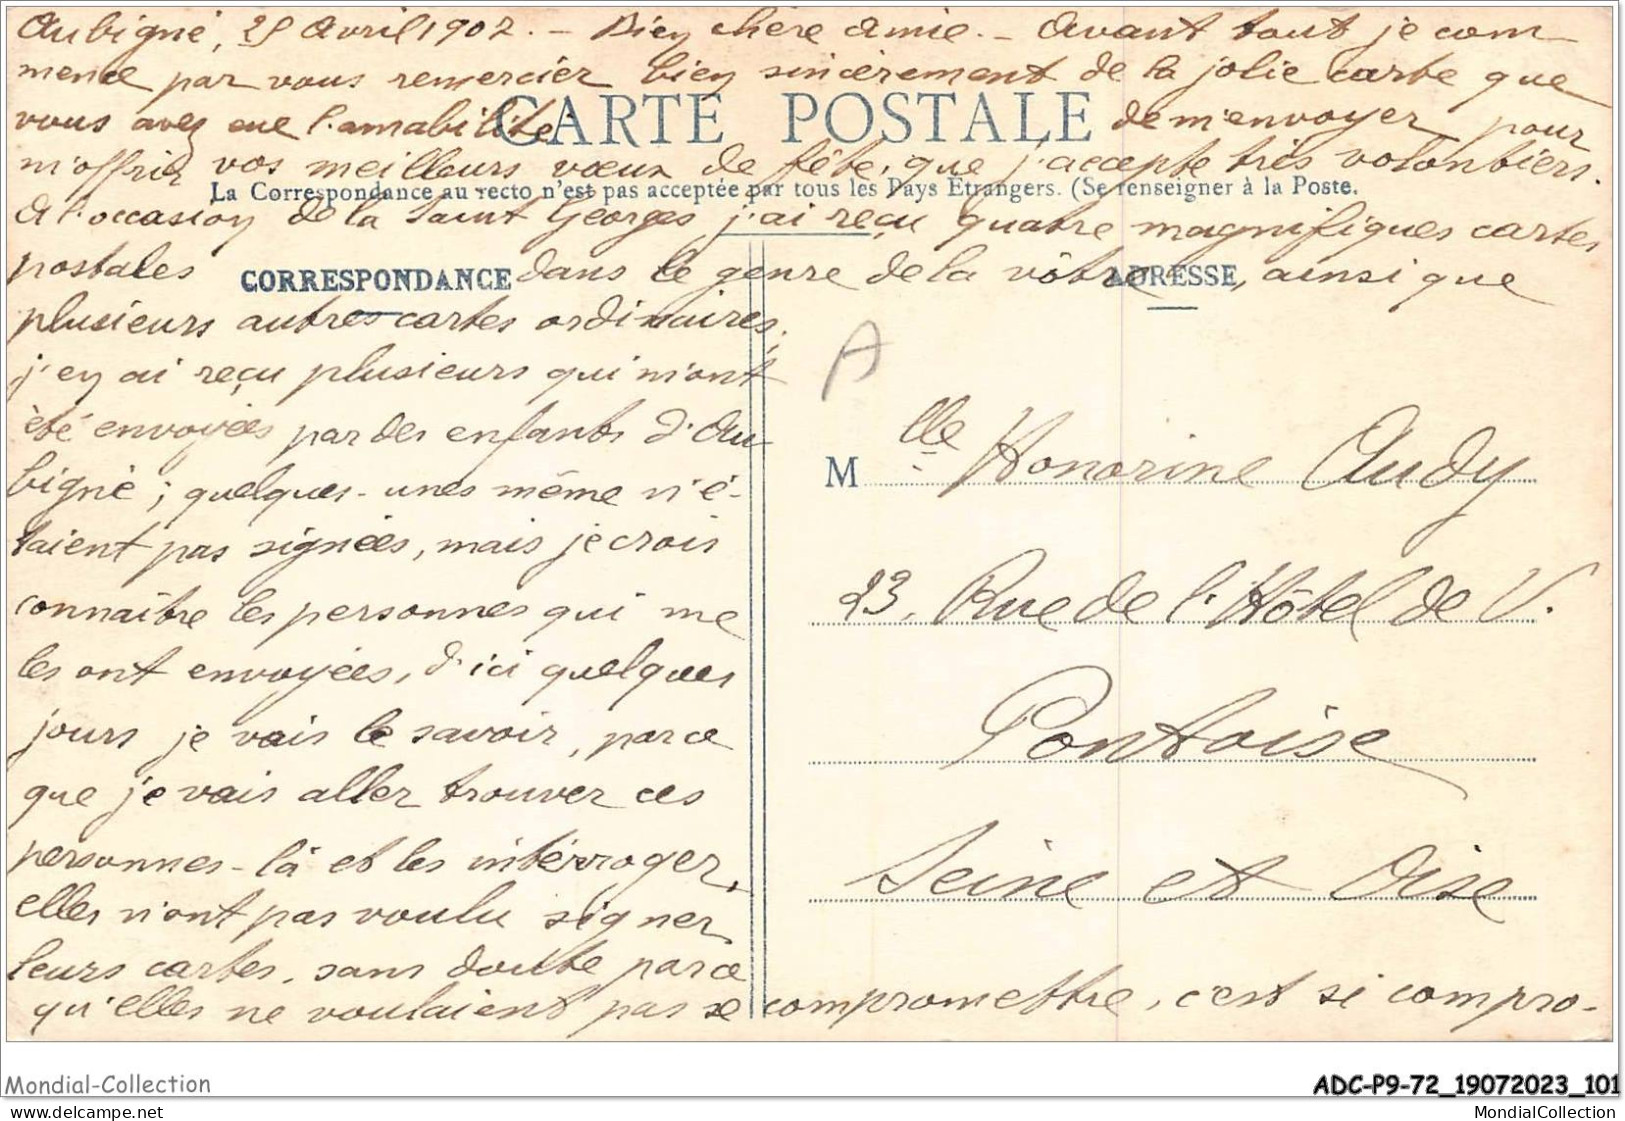 Aubigné, 25 Avril 1907. - Bien chère Amie. - Avant tout je com-
mence par vous remercier bien sincèrement de la jolie carte que
vous avez eue l'amabilité de m'envoyer pour
CARTE POSTALE
m'offrir vos meilleurs vœux de fête, que j'accepte très volontiers.
La Correspondance au recto n'est pas acceptée par tous les Pays Etrangers. (Se renseigner à la Poste.
A l'occasion de la Saint Georges j'ai reçu quatre magnifiques cartes
postales dans le genre de la vôtre, ainsi que
CORRESPONDANCE
ADRESSE
plusieurs autres cartes ordinaires,
j'en ai reçu plusieurs qui m'ont
été envoyées par des enfants d'Au-
bigné; quelques-unes même n'é-
taient pas signées, mais je crois
connaître les personnes qui me
les ont envoyées, d'ici quelques
jours je vais le savoir, parce
que je vais aller trouver ces
personnes-là et les intérroger,
elles n'ont pas voulu signer
leurs cartes, sans doute parce
qu'elles ne voulaient pas se compromettre, c'est si compro-
A
M lle Honorine Audy
23, Rue de l'Hôtel de V.
Pontoise
Seine et Oise
Mondial-Collection
ADC-P9-72_19072023_101
delcampe.net
MondialCollection